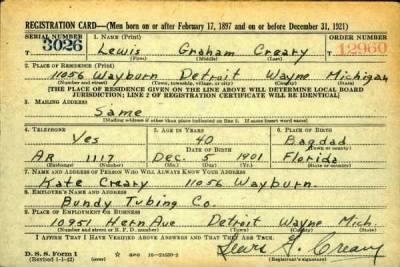 REGISTRATION CARD—(Men born on or after February 17, 1897 and on or before December 31, 1921)
SERIAL NUMBER 1. NAME (Print) ORDER NUMBER
3026 Lewis Graham Creary 12960
(First) (Middle) (Last)
2. PLACE OF RESIDENCE (Print)
11056 Wayburn Detroit Wayne Michigan
(Number and street) (Town, township, village, or city) (County) (State)
[THE PLACE OF RESIDENCE GIVEN ON THE LINE ABOVE WILL DETERMINE LOCAL BOARD
JURISDICTION; LINE 2 OF REGISTRATION CERTIFICATE WILL BE IDENTICAL]
3. MAILING ADDRESS
Same
[Mailing address if other than place indicated on line 2. If same insert word same]
4. TELEPHONE 5. AGE IN YEARS 6. PLACE OF BIRTH
Yes 40 Bagdad
DATE OF BIRTH (Town or county)
AR 1117 Dec. 5 1901 Florida
(Exchange) (Number) (Mo.) (Day) (Yr.) (State or country)
7. NAME AND ADDRESS OF PERSON WHO WILL ALWAYS KNOW YOUR ADDRESS
Kate Creary 11056 Wayburn.
8. EMPLOYER'S NAME AND ADDRESS
Bundy Tubing Co.
9. PLACE OF EMPLOYMENT OR BUSINESS
10951 Hern Ave Detroit Wayne Mich.
(Number and street or R. F. D. number) (Town) (County) (State)
I AFFIRM THAT I HAVE VERIFIED ABOVE ANSWERS AND THAT THEY ARE TRUE.
D. S. S. Form 1
(Revised 1-1-42) (over) GPO 16—21630-2 Lewis G. Creary